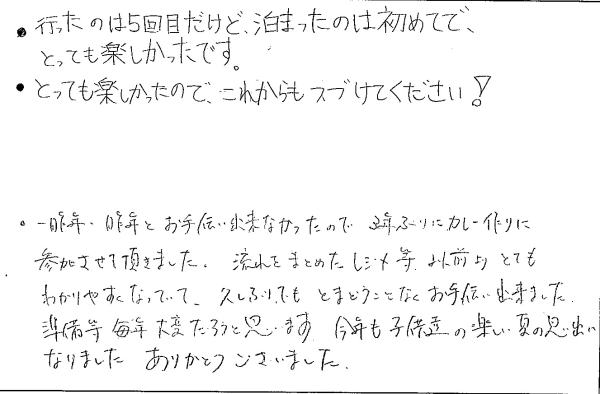 • 行ったのは5回目だけど、泊まったのは初めてで、
とっても楽しかったです。
• とっても楽しかったので、これからもつづけてください!
• 一昨年・昨年とお手伝い出来なかったので 3年ぶりにカレー作りに
参加させて頂きました。流れをまとめたレジメ等 以前よりとても
わかりやすくなっていて、久しぶりでもとまどうことなくお手伝い出来ました.
準備等 毎年大変だろうと思います 今年も子供達の楽しい夏の思い出に
なりました ありがとうございました.